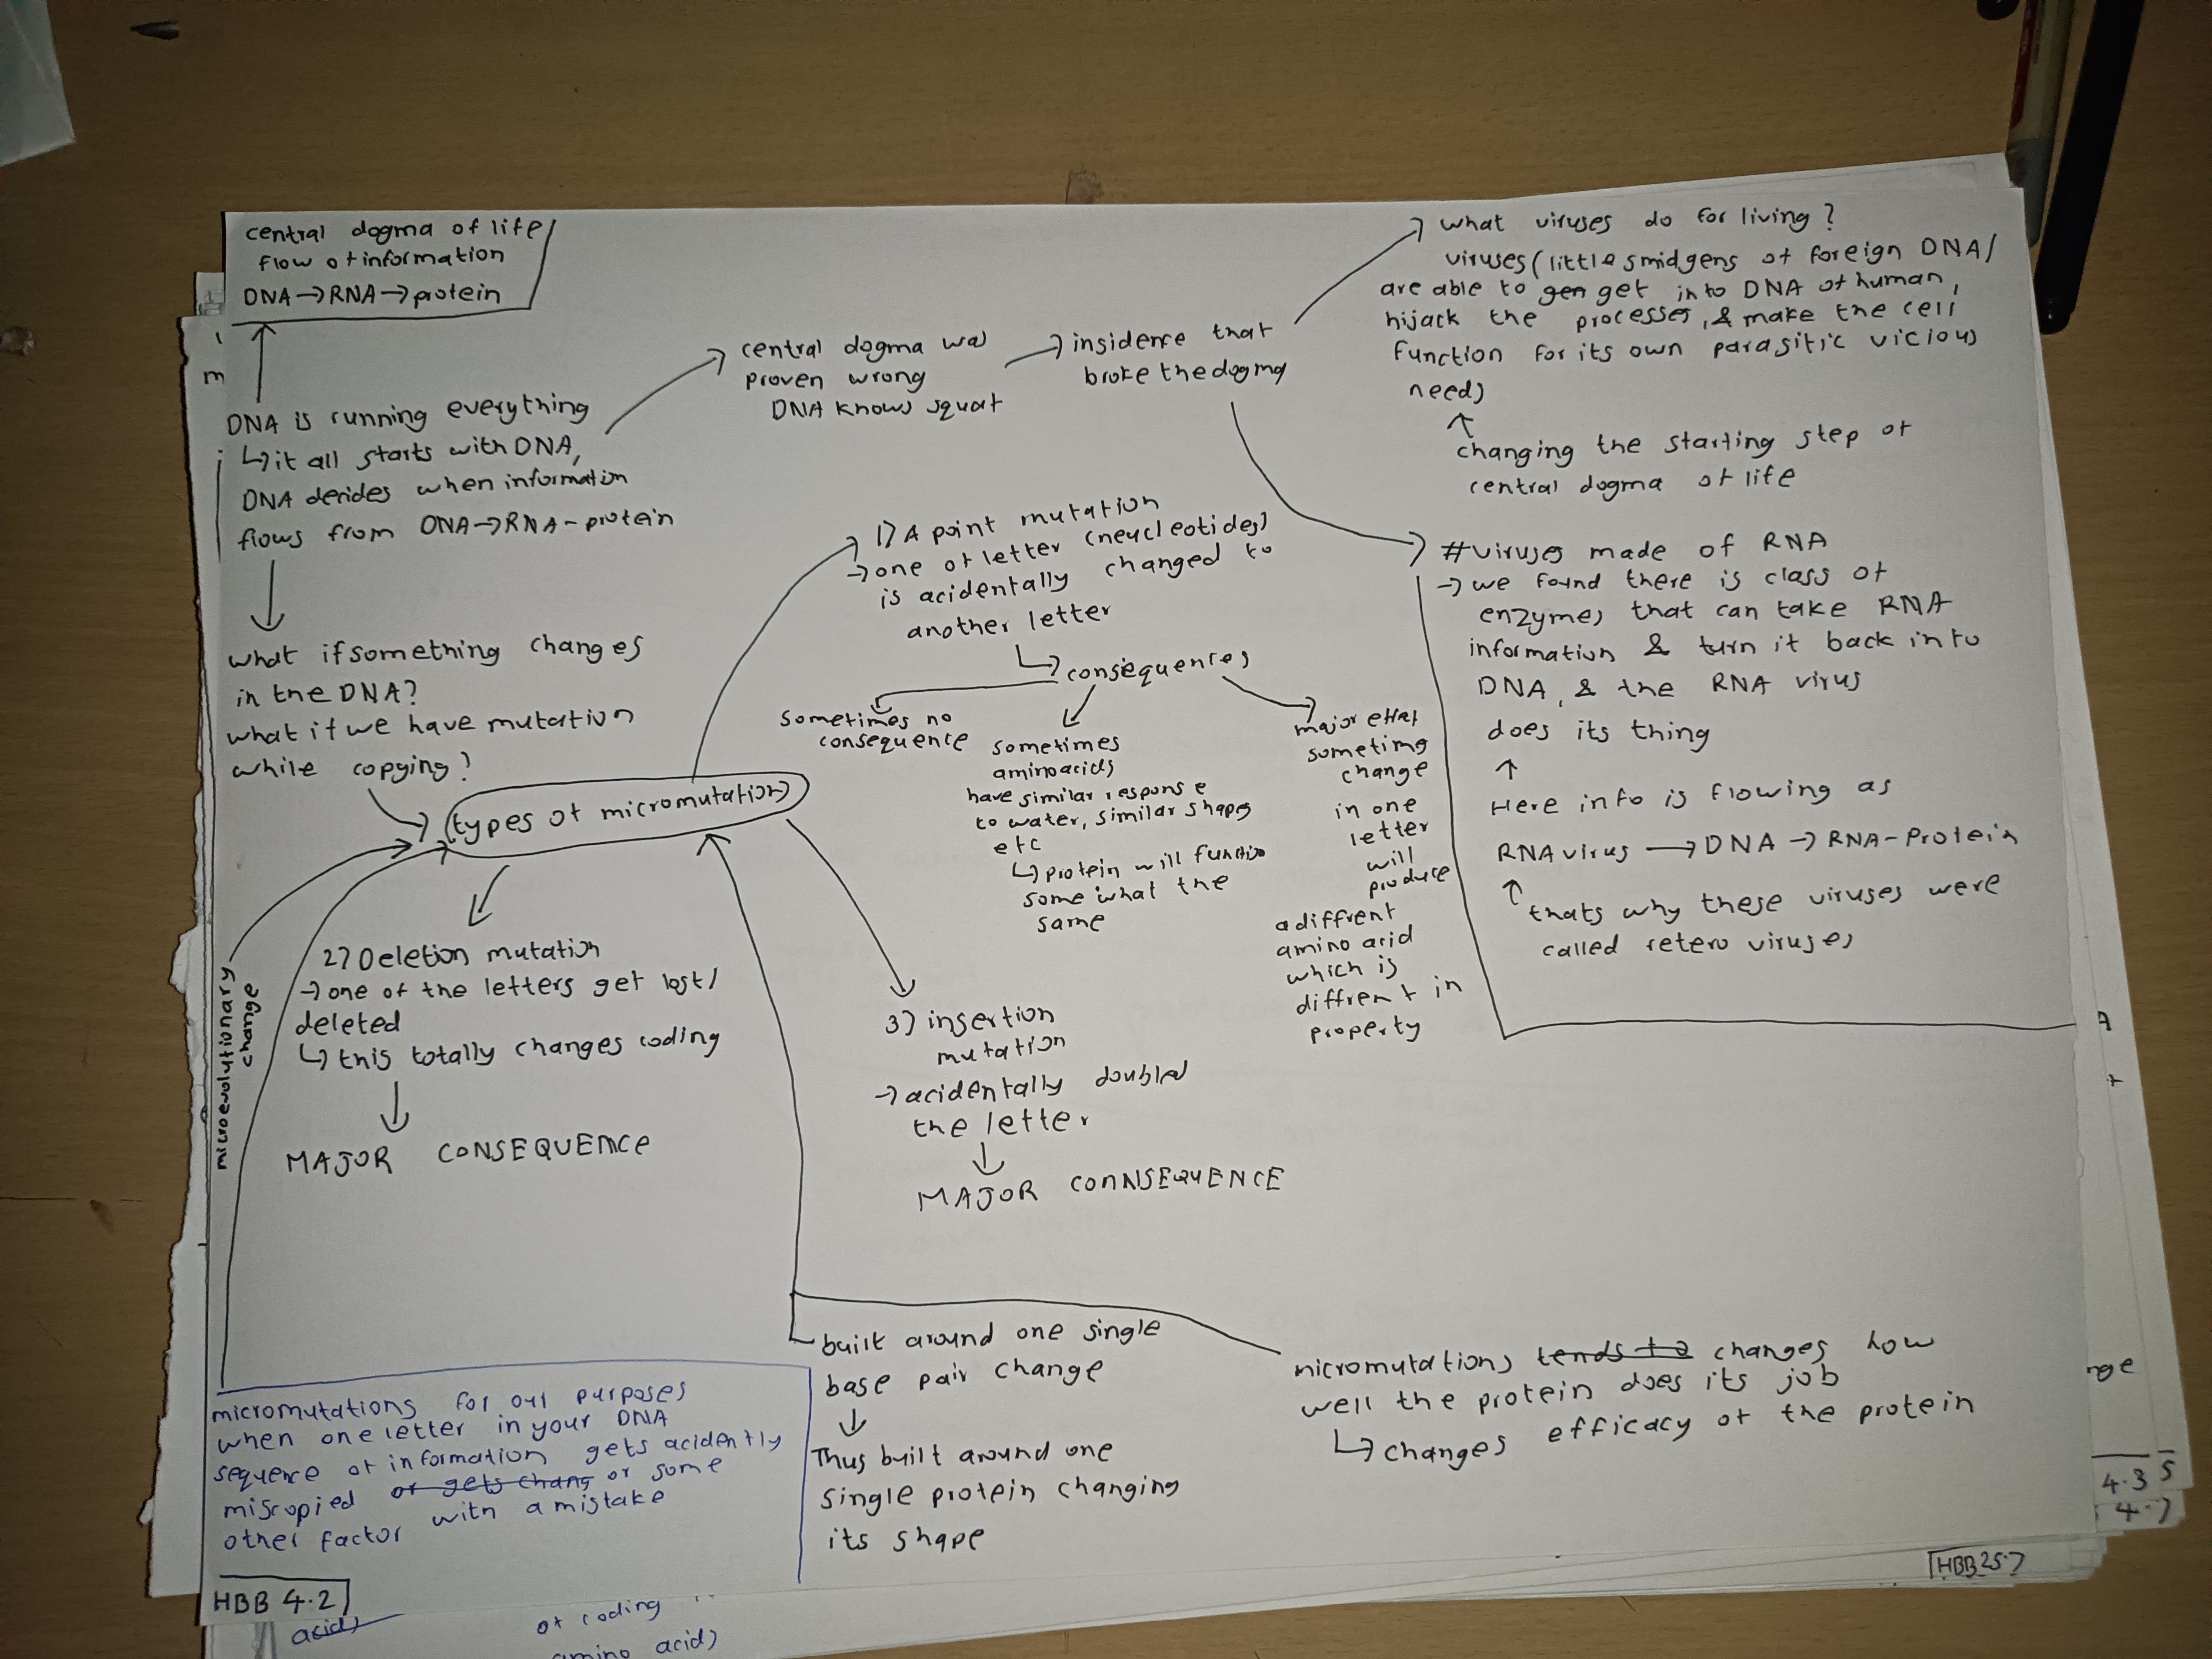 central dogma of life
flow of information
DNA → RNA → protein
DNA is running everything
↳ it all starts with DNA,
DNA decides when information
flows from DNA → RNA - protein
what if something changes
in the DNA?
what if we have mutation
while copying?
types of micromutation
central dogma was
proven wrong
DNA knows squat
insidence that
broke the dogma
what viruses do for living?
viruses (little smidgens of foreign DNA/
are able to gen get into DNA of human,
hijack the processes, & make the cell
function for its own parasitic vicious
need)
↑
changing the starting step of
central dogma of life
#viruses made of RNA
→ we found there is class of
enzymes that can take RNA
information & turn it back into
DNA, & the RNA virus
does its thing
↑
Here info is flowing as
RNA virus → DNA → RNA - Protein
↑
thats why these viruses were
called retero viruses
1) A point mutation
→ one of letter (neucleotides)
is acidentally changed to
another letter
↳ consequences
sometimes no
consequence
sometimes
aminoacids
have similar response
to water, similar shapes
etc
↳ protein will function
some what the
same
major effect
someting
change
in one
letter
will
produce
a diffrent
amino acid
which is
diffrent in
property
2) Deletion mutation
→ one of the letters get lost/
deleted
↳ this totally changes coding
↓
MAJOR CONSEQUENCE
3) insertion
mutation
→ acidentally doubled
the letter
↓
MAJOR CONNSEQUENCE
microevolutionary
change
built around one single
base pair change
↓
Thus built around one
single protein changing
its shape
micromutations tends to changes how
well the protein does its job
↳ changes efficacy of the protein
micromutations for our purposes
when one letter in your DNA
sequence of information gets acidently
miscopied or gets chang or some
other factor with a mistake
HBB 4.2
acid)
of coding
amino acid)
nge
4.3
5
4.7
HBB 25.7